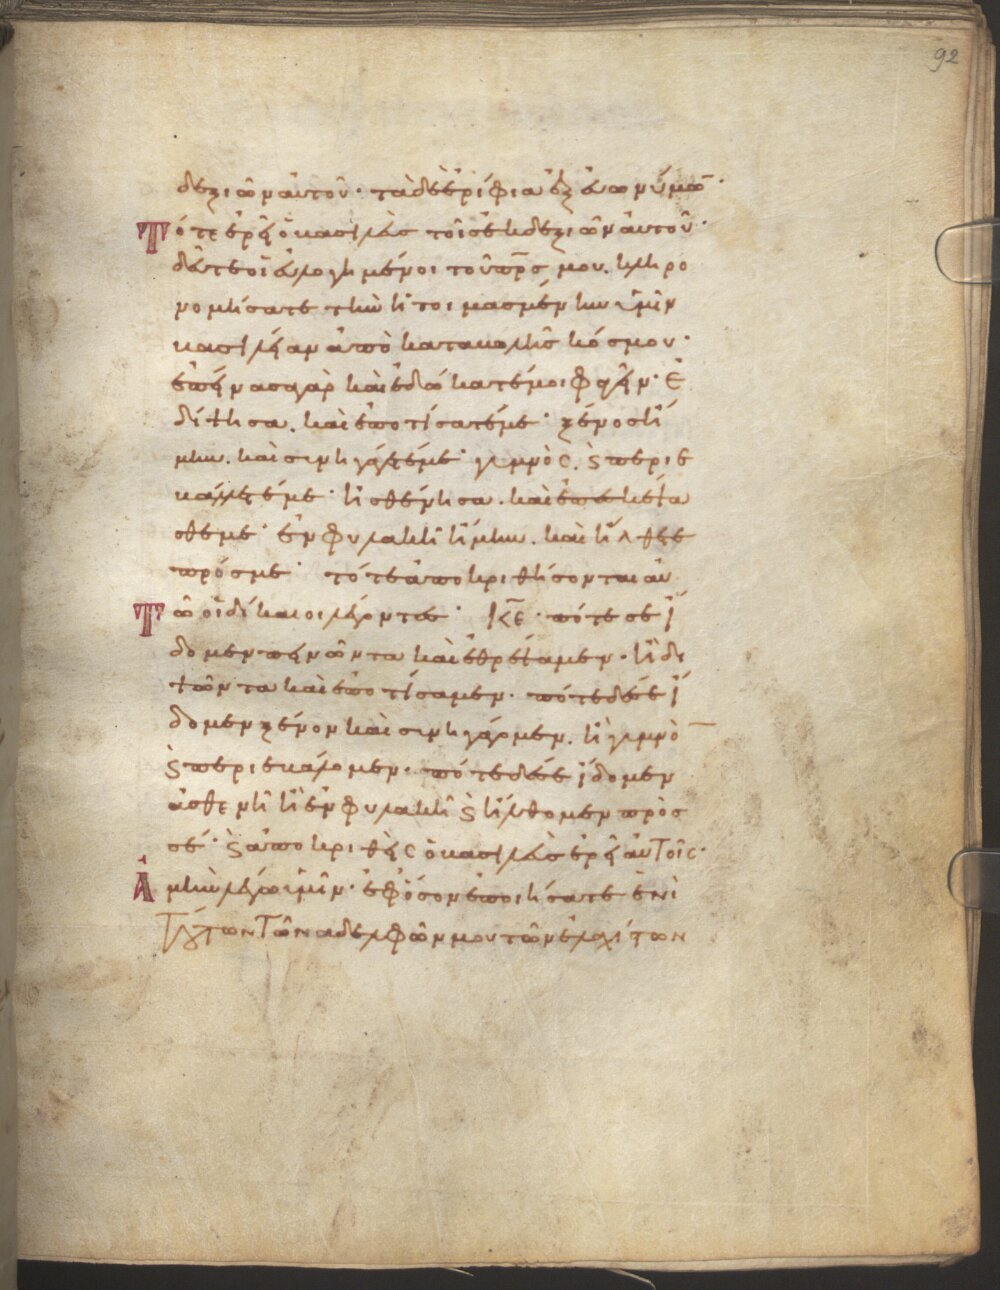 92
δεξιῶν αὐτοῦ· τὰ δὲ ἐρίφια ἐξ εὐωνύμω̅·
Τότε ἐρεῖ ὁ βασιλεὺς τοῖς ἐκ δεξιῶν αὐτοῦ·
δεῦτε οἱ εὐλογημένοι τοῦ π̅ρ̅ς μου. κληρο
νομήσατε τὴν ἡτοιμασμένην ὑμῖν
βασιλείαν ἀπὸ καταβολῆς κόσμου·
ἐπείνασα γὰρ καὶ ἐδώκατέ μοι φαγεῖν· ἐ
δίψησα. καὶ ἐποτίσατέ με· ξένος ἤ
μην. καὶ συνηγάγετέ με· γυμνὸς. ϗ περιε
βάλετέ με· ἠσθένησα. καὶ ἐπεσκέψα
σθέ με· ἐν φυλακῆ ἤμην. καὶ ἤλθετε
πρός με· τότε ἀποκριθήσονται αὐ
Τῶ οἱ δίκαιοι λέγοντες· κ̅ε̅· πότε σὲ ἴ
δομεν πεινῶντα καὶ ἐθρέψαμεν· ἢ δι
ψῶντα καὶ ἐποτίσαμεν· πότε δέ σε ἴ
δομεν ξένον καὶ συνηγάγομεν. ἢ γυμνὸ̅
ϗ περιεβάλομεν· πότε δέ σε ἴδομεν
ἀσθενῆ ἢ ἐν φυλακῆ ϗ ἤλθομεν πρός
σέ· ϗ ἀποκριθεὶς ὁ βασιλεὺς ἐρεῖ αὐτοῖς·
Ἀμὴν λέγω ὑμῖν· ἐφόσον ἐποιήσατε ἑνὶ
τούτων τῶν ἀδελφῶν μου τῶν ἐλαχίστων